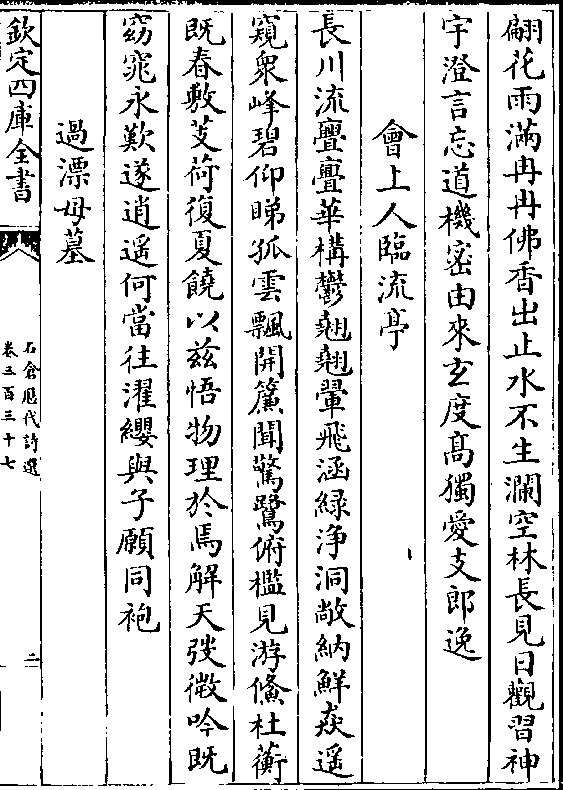 翩花雨滿冉冉佛香出止水不生瀾空林長見日觀習神
宇澄言忘道機密由來玄度高獨愛支郎逸
會上人臨流亭
長川流亹亹華構鬱翹翹翬飛涵綠淨洞敞納鮮猋遥
窺衆峰碧仰睇孤雲飄開簾聞驚鷺俯檻見游鯈杜蘅
既春敷芰荷復夏饒以兹悟物理於焉解天弢微吟既
窈窕永歎遂逍遥何當往濯纓與子願同袍
過漂母墓
欽定四庫全書
石倉歷代詩選
卷三百三十七
二